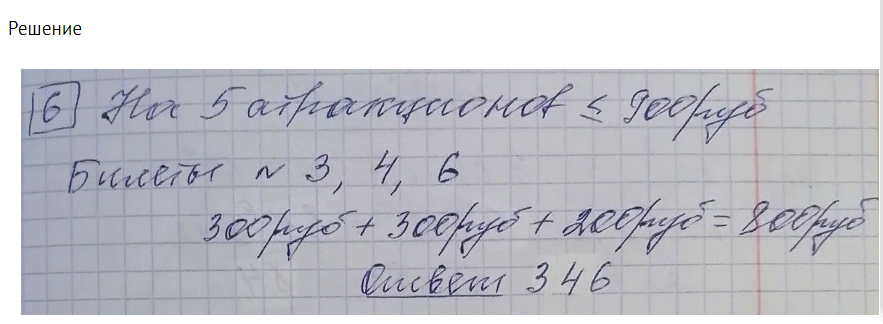 Решение
6 На 5 атракционов ≤ 900руб
Билеты ~ 3, 4, 6
300руб + 300руб + 200руб = 800руб
Ответ 346